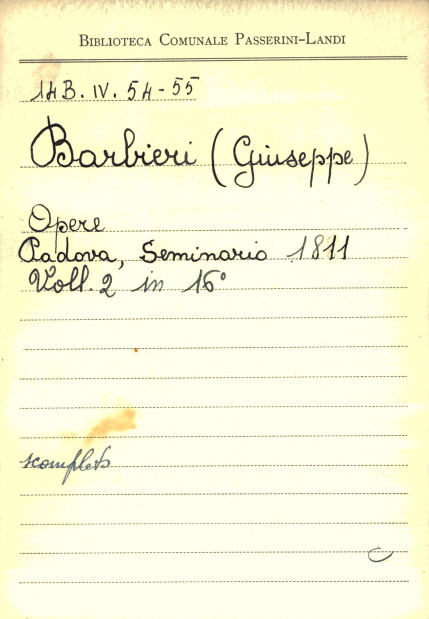 BIBLIOTECA COMUNALE PASSERINI-LANDI
14B. IV. 54-55
Barbieri (Giuseppe)
Opere
Padova, Seminario 1811
Voll. 2 in 16°